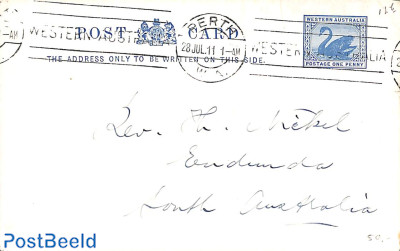 PERTH
28 JUL.11 1-AM
W.A.
-AM
WESTERN AUSTRALIA
WESTERN AUSTRALIA
POST CARD
THE ADDRESS ONLY TO BE WRITTEN ON THIS SIDE.
WESTERN AUSTRALIA
POSTAGE ONE PENNY
Rev. Th. Nickel
Eudunda
South Australia
50,-
PostBeeld